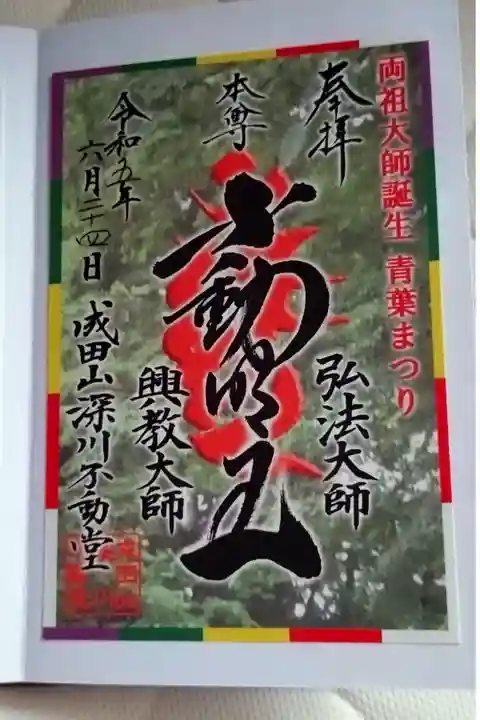 両祖大師誕生 青葉まつり
奉拝
弘法大師
本尊
不動明王
興教大師
令和五年
六月二十四日
成田山深川不動堂